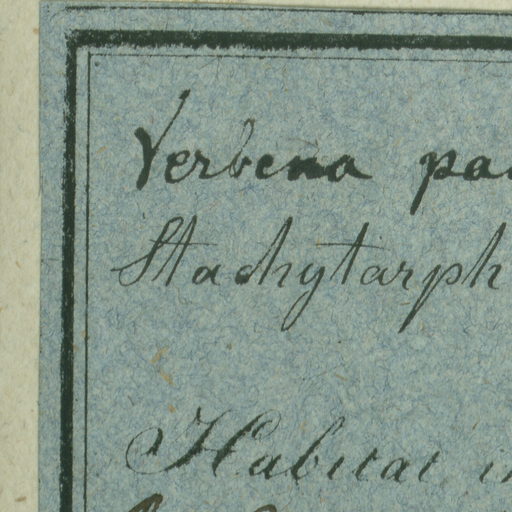 Verbena pa
Stachytarph
Habitat in